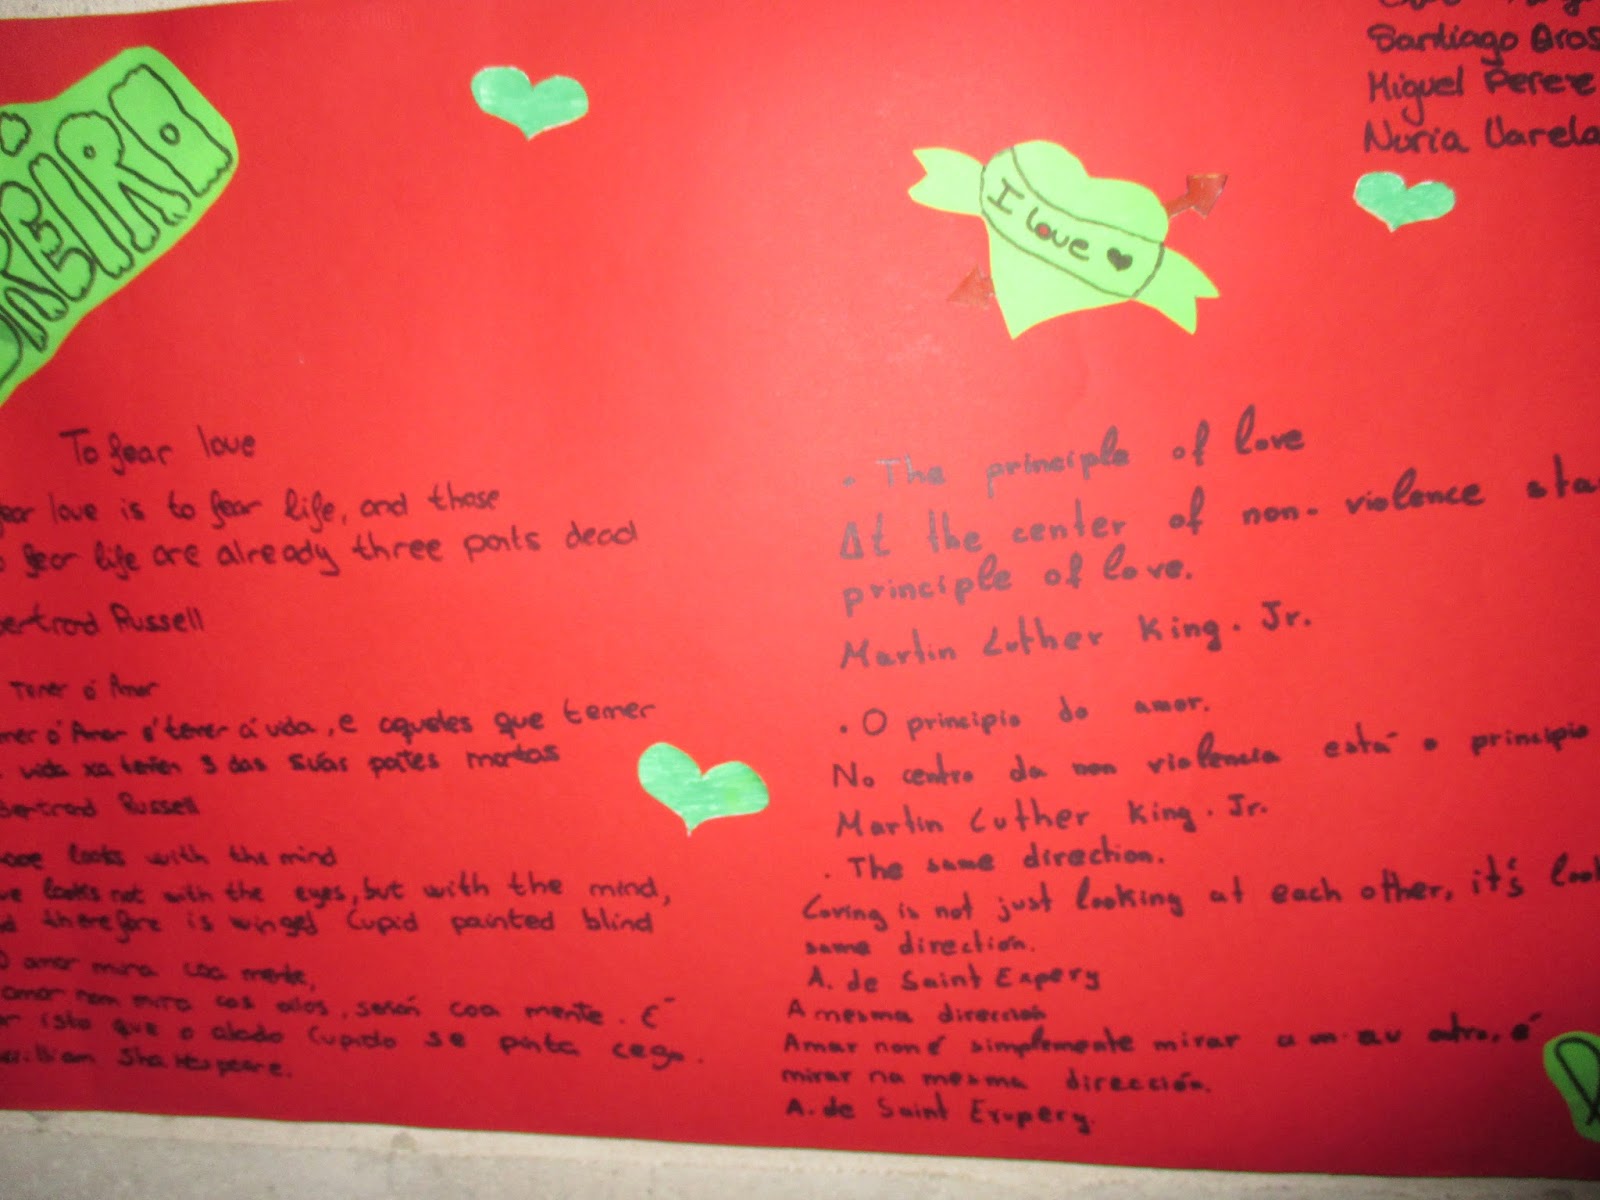 Santiago
Miguel Perez
Nuria Varela
I love
To fear love
fear love is to fear life, and those
fear life are already three parts dead
Bertrand Russell
Temer ó Amor
ó Amor é temer á vida, e aqueles que temer
vida xa teñen 3 das súas partes mortas
Bertrand Russell
looks with the mind
looks not with the eyes, but with the mind,
therefore is winged Cupid painted blind
O amor mira coa mente,
amor non mira cos ollos, senón coa mente. É
isto que o alado Cupido se pinta cego.
William Shakespeare.
. The principle of love
At the center of non-violence
principle of love.
Martin Luther King. Jr.
. O principio do amor.
No centro da non violencia está o principio
Martin Luther King. Jr.
. The same direction.
Loving is not just looking at each other, it's
same direction.
A. de Saint Expery
A mesma dirección
Amar non é simplemente mirar un ao outro, é
mirar na mesma dirección.
A. de Saint Exupery.